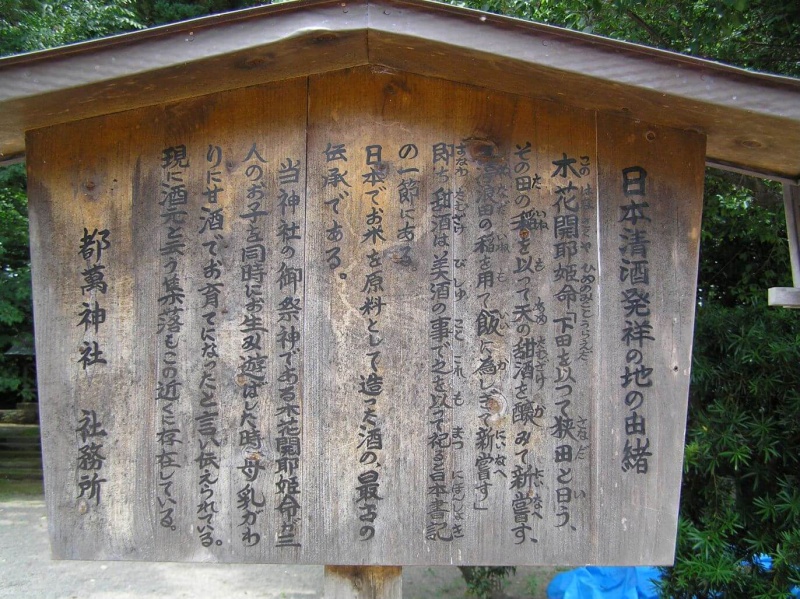 日本清酒発祥の地の由緒
木花開耶姫命「下田を以って狭田と曰う、
その田の稲を以って天の甜酒を醸みて新嘗す、
浪田の稲を用て飯に為しきて新嘗す」
即ち甜酒は美酒の事で之を以って祀る日本書記
の一節にある
日本でお米を原料として造った酒の、最古の
伝承である。
当神社の御祭神である木花開耶姫命が三
人のお子を同時にお生み遊ばした時、母乳がわ
りに甘酒でお育てになったと言い伝えられている。
現に酒元と云う集落もこの近くに存在している。
都萬神社 社務所